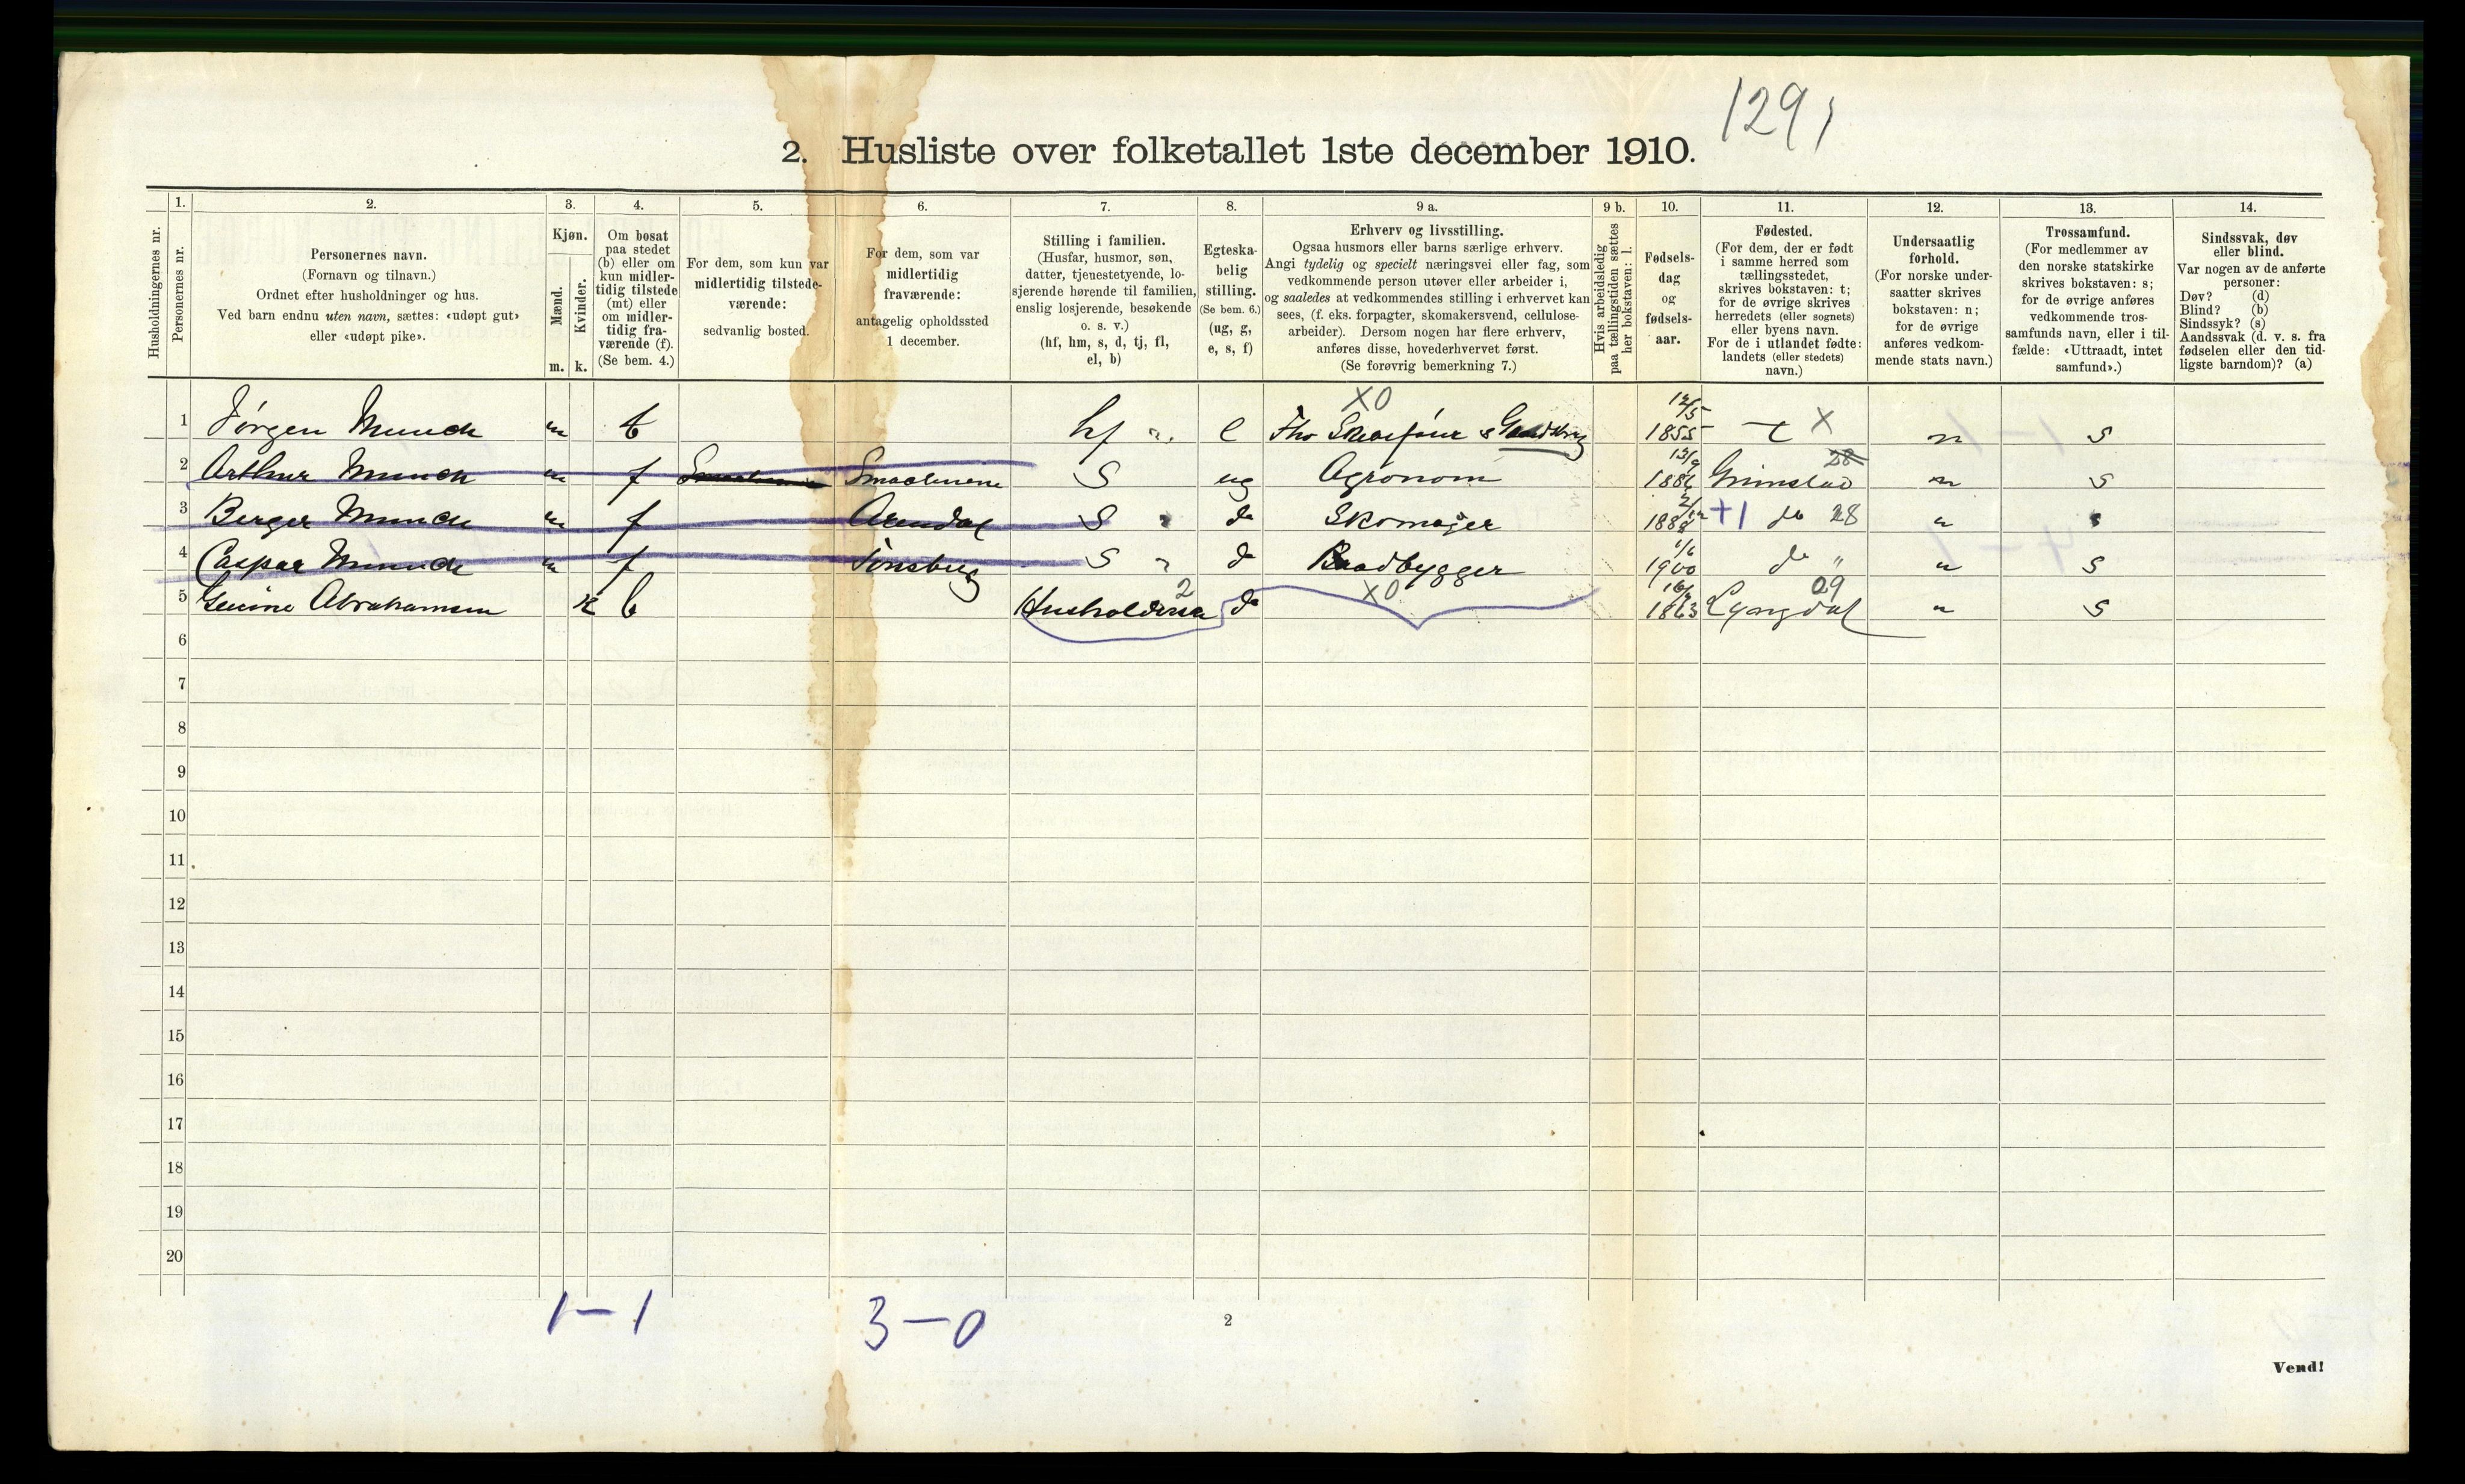 1291
2. Husliste over folketallet 1ste december 1910.
Husholdningernes nr.
1.
Personernes nr.
2.
Personernes navn.
(Fornavn og tilnavn.)
Ordnet efter husholdninger og hus.
Ved barn endnu uten navn, sættes: «udøpt gut»
eller «udøpt pike».
3.
Kjøn.
Mænd.
Kvinder.
m. k.
4.
Om bosat
paa stedet
(b) eller om
kun midler-
tidig tilstede
(mt) eller
om midler-
tidig fra-
værende (f).
(Se bem. 4.)
5.
For dem, som kun var
midlertidig tilstede-
værende:
sedvanlig bosted.
6.
For dem, som var
midlertidig
fraværende:
antagelig opholdssted
1 december.
7.
Stilling i familien.
(Husfar, husmor, søn,
datter, tjenestetyende, lo-
sjerende hørende til familien,
enslig losjerende, besøkende
o. s. v.)
(hf, hm, s, d, tj, fl,
el, b)
8.
Egteska-
belig
stilling.
(Se bem. 6.)
(ug, g,
e, s, f)
9 a.
Erhverv og livsstilling.
Ogsaa husmors eller barns særlige erhverv.
Angi tydelig og specielt næringsvei eller fag, som
vedkommende person utøver eller arbeider i,
og saaledes at vedkommendes stilling i erhvervet kan
sees, (f. eks. forpagter, skomakersvend, cellulose-
arbeider). Dersom nogen har flere erhverv,
anføres disse, hovederhvervet først.
(Se forøvrig bemerkning 7.)
9 b.
Hvis arbeidsledig
paa tællingstiden sættes
her bokstaven: l.
10.
Fødsels-
dag
og
fødsels-
aar.
11.
Fødested.
(For dem, der er født
i samme herred som
tællingsstedet,
skrives bokstaven: t;
for de øvrige skrives
herredets (eller sognets)
eller byens navn.
For de i utlandet fødte:
landets (eller stedets)
navn.)
12.
Undersaatlig
forhold.
(For norske under-
saatter skrives
bokstaven: n;
for de øvrige
anføres vedkom-
mende stats navn.)
13.
Trossamfund.
(For medlemmer av
den norske statskirke
skrives bokstaven: s;
for de øvrige anføres
vedkommende tros-
samfunds navn, eller i til-
fælde: «Uttraadt, intet
samfund».)
14.
Sindssvak, døv
eller blind.
Var nogen av de anførte
personer:
Døv? (d)
Blind? (b)
Sindssyk? (s)
Aandssvak (d. v. s. fra
fødselen eller den tid-
ligste barndom)? (a)
1 Jørgen Munch m b hf e X0 12/5 1855 t X n S
2 Arthur Munch m f Smaalenene S ug Agronom 13/9 1886 Grimstad 28 n S
3 Berger Munch m f Arendal S do Skomager 1888 +1 do 28 n s
4 Caspar Munch m f Tønsberg S do Baadbygger 1/6 1900 do " n S
5 Abrahamsen k b Husholderske 2 do X0 1863 Lyngdal 09 n S
6
7
8
9
10
11
12
13
14
15
16
17
18
19
20
1-1 3-0
2
Vend!